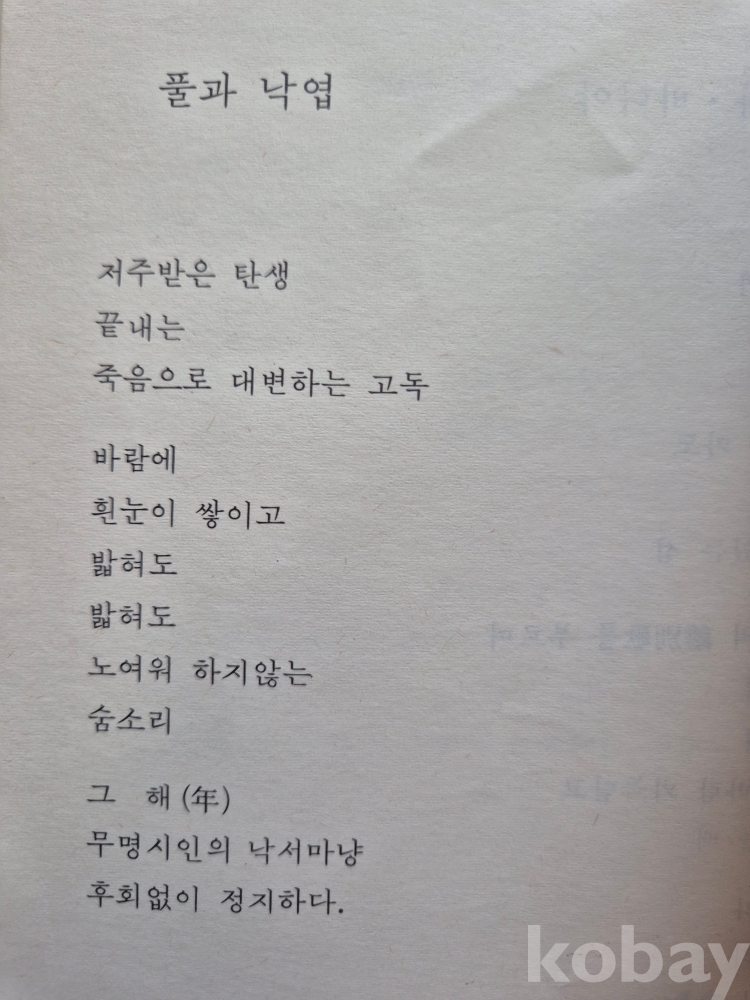 풀과 낙엽
저주받은 탄생
끝내는
죽음으로 대변하는 고독
바람에
흰눈이 쌓이고
밟혀도
밟혀도
노여워 하지않는
숨소리
그 해(年)
무명시인의 낙서마냥
후회없이 정지하다.
kobay